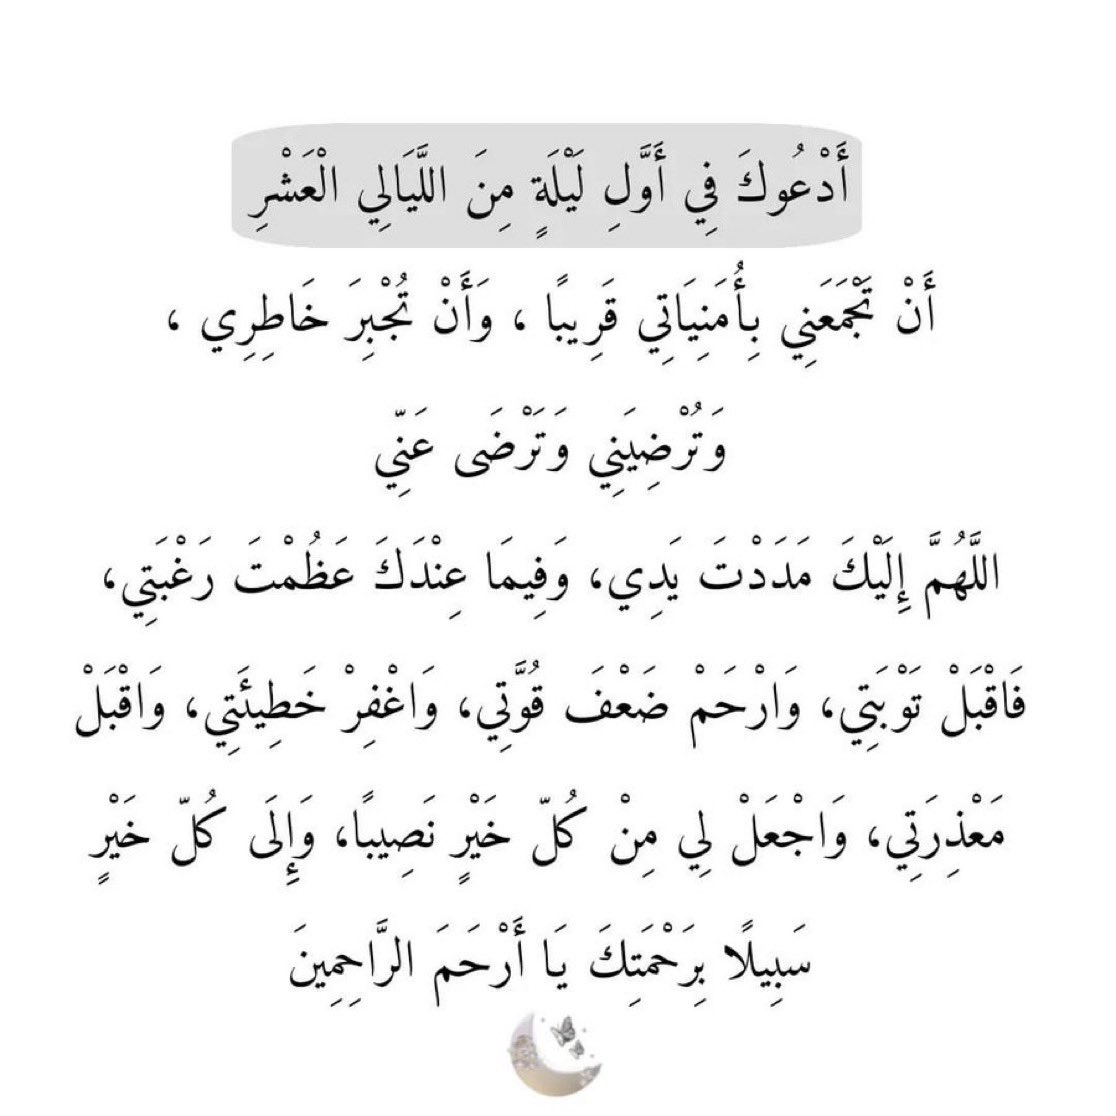 أَدْعُوكَ فِي أَوَّلِ لَيْلَةٍ مِنَ اللَّيَالِي الْعَشْرِ
أَنْ تَجْمَعَنِي بِأُمَنِيَاتِي قَرِيبًا ، وَأَنْ تُجْبِرَ خَاطِرِي ،
وَتُرْضِيَنِي وَتَرْضَى عَنِّي
اللَّهُمَّ إِلَيْكَ مَدَدْتَ يَدِي، وَفِيمَا عِنْدَكَ عَظُمْتَ رَغْبَتِي،
فَاقْبَلْ تَوْبَتِي، وَارْحَمْ ضَعْفَ قُوَّتِي، وَاغْفِرْ خَطِيئَتِي، وَاقْبَلْ
مَعْذِرَتِي، وَاجْعَلْ لِي مِنْ كُلّ خَيْرٍ نَصِيبًا، وَإِلَى كُلّ خَيْرٍ
سَبِيلًا بِرَحْمَتِكَ يَا أَرْحَمَ الرَّاحِمِينَ